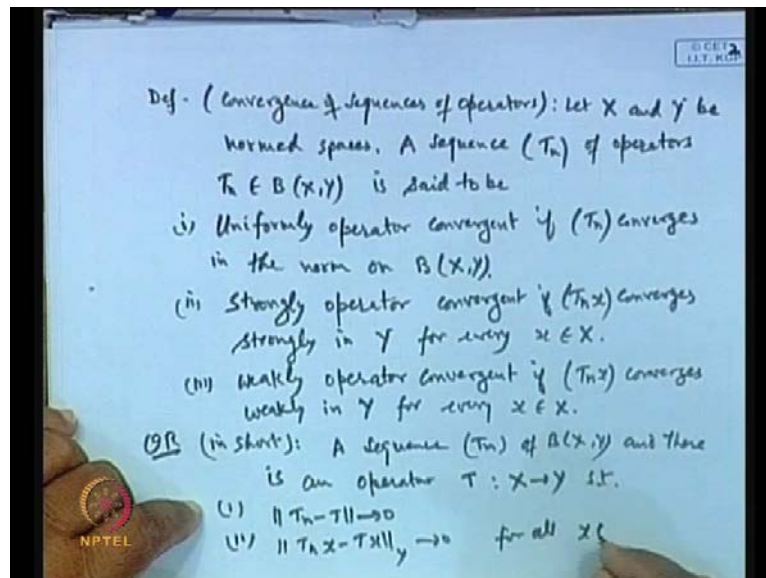 © CET
I.I.T. KGP
2
Def. - (Convergence of Sequences of operators): Let X and Y be
normed spaces. A sequence (Tn) of operators
Tn ∈ B(X,Y) is said to be
(i) Uniformly operator convergent if (Tn) converges
in the norm on B(X,Y).
(ii) Strongly operator convergent if (Tnx) converges
strongly in Y for every x ∈ X.
(iii) weakly operator convergent if (Tnx) converges
weakly in Y for every x ∈ X.
OR (in short): A sequence (Tn) of B(X,Y) and there
is an operator T : X→Y s.t.
(i) || Tn - T|| → 0
(ii) || Tn x - Tx||y → 0 for all x ∈
NPTEL